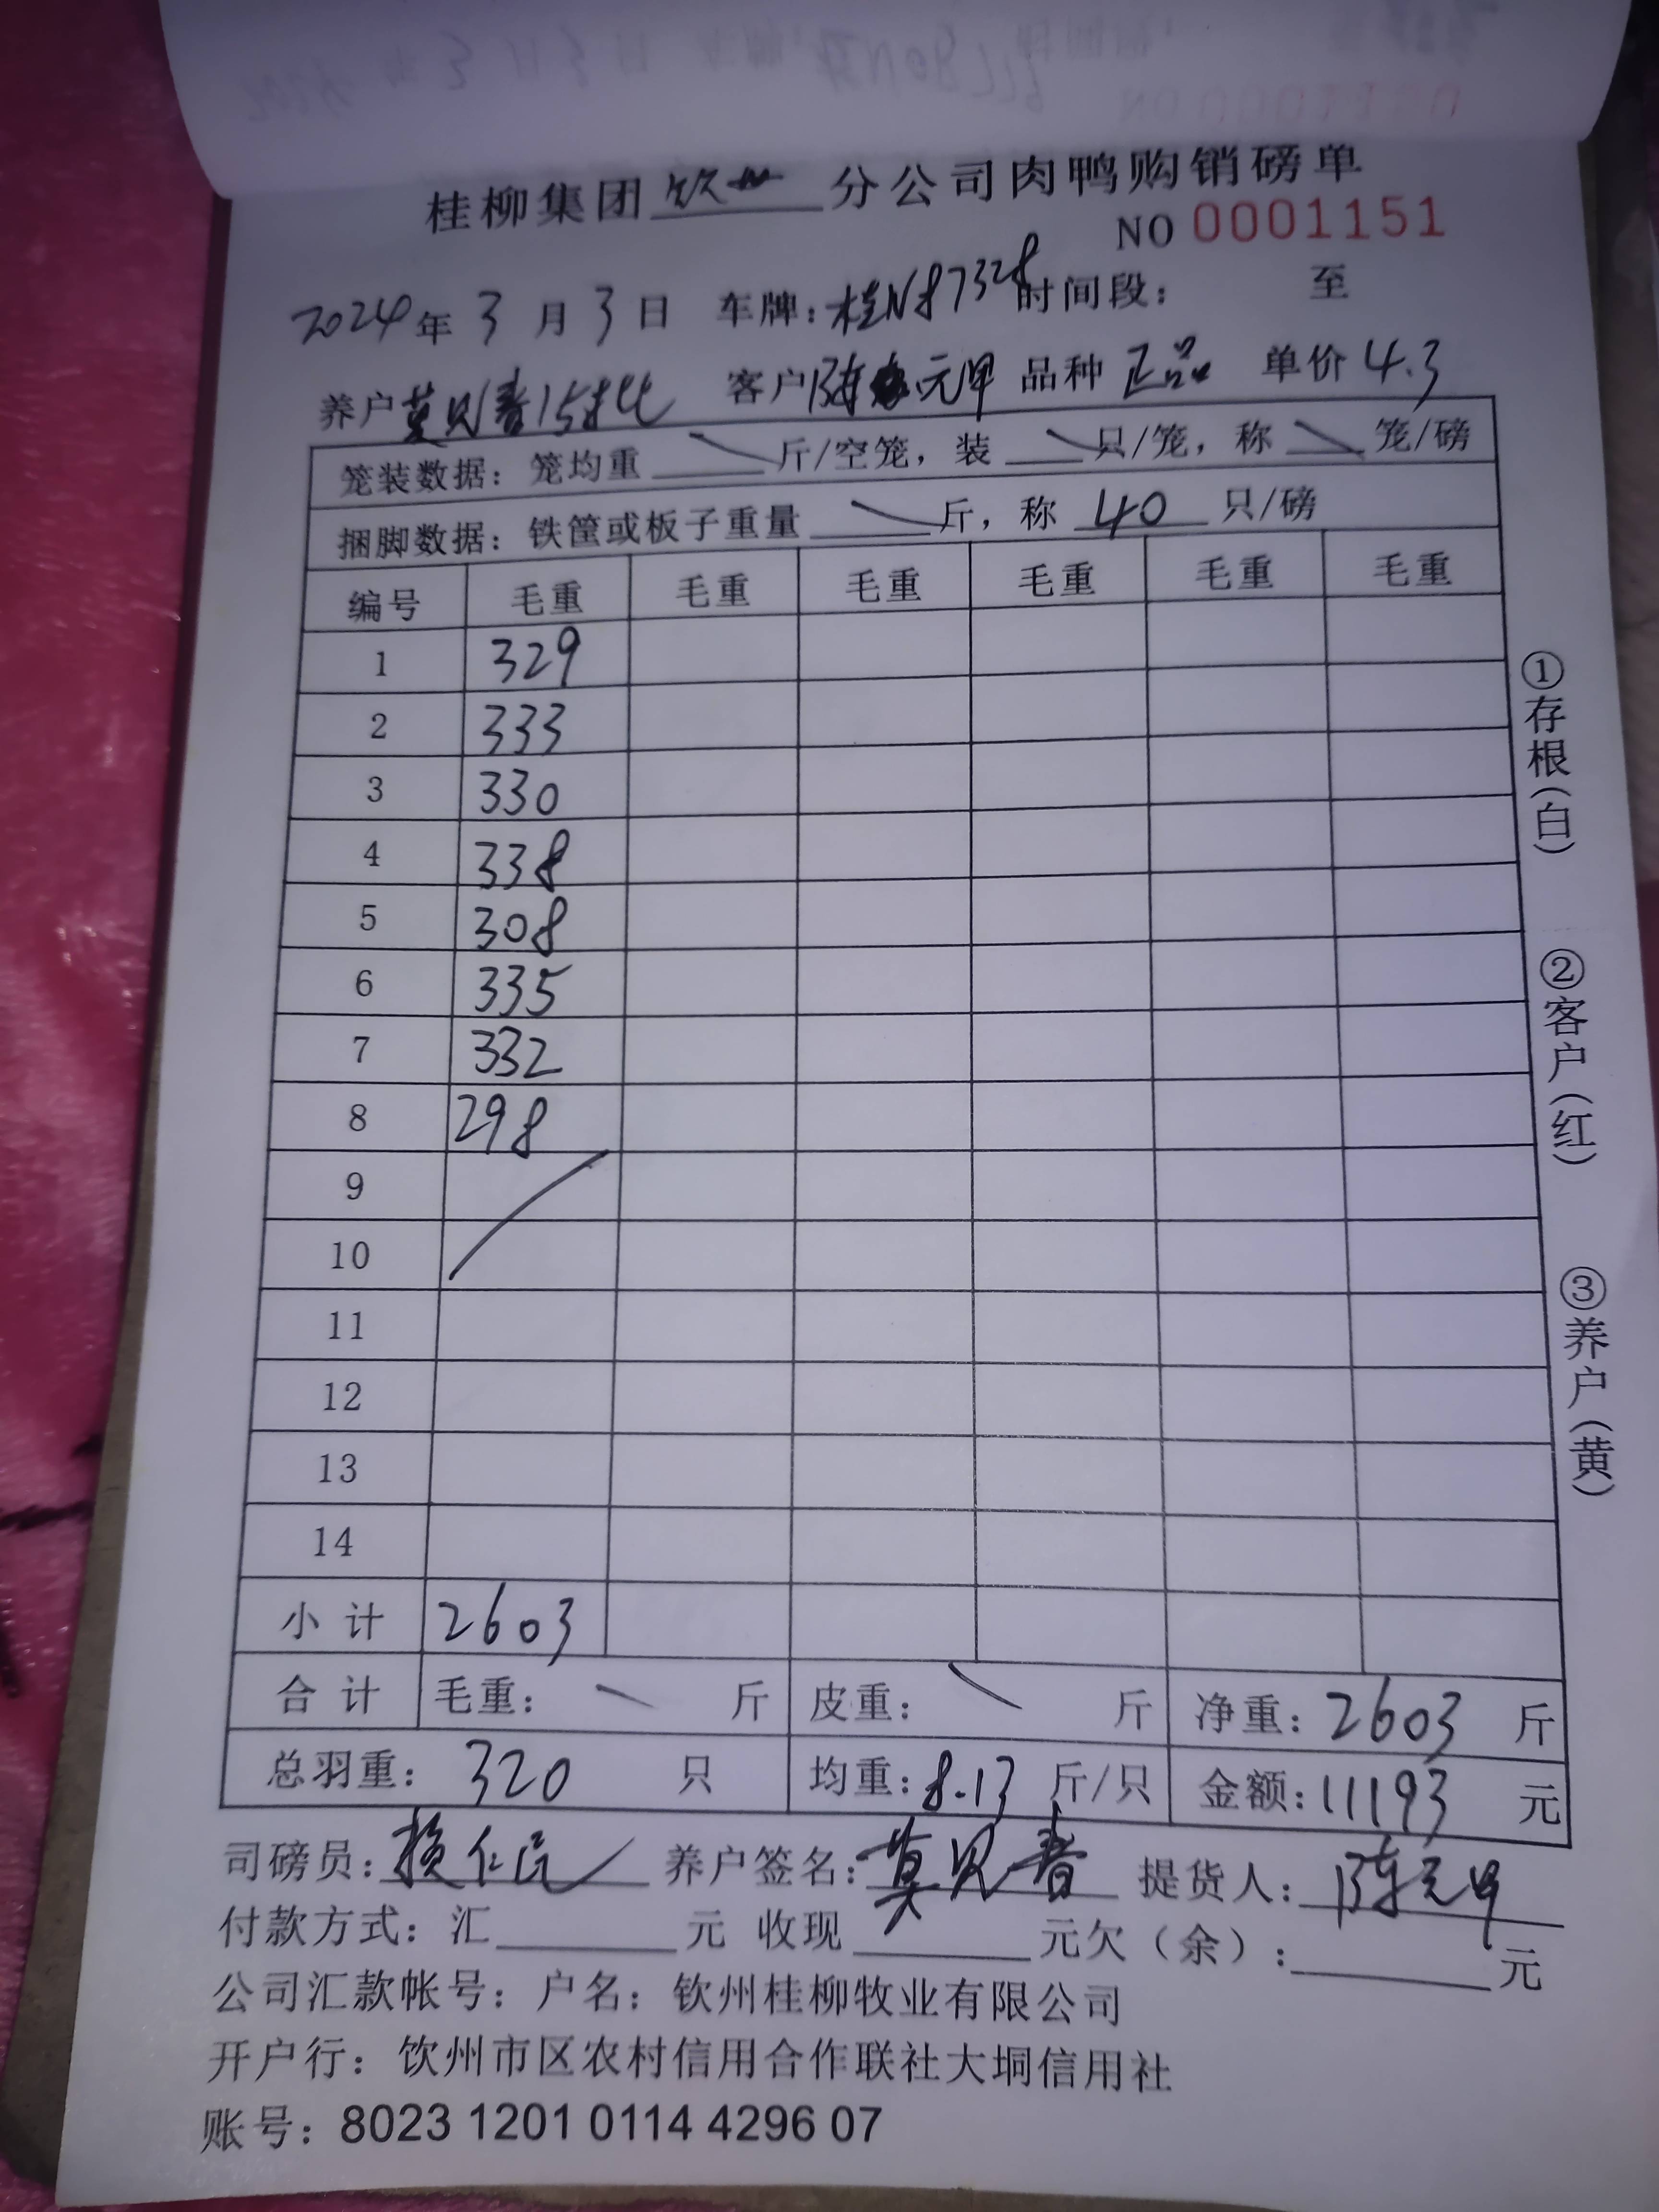 桂柳集团钦州分公司肉鸭购销磅单
NO 0001151
2024年3月3日 车牌：桂N87328 时间段： 至
养户莫贝春15批 客户陈元甲 品种 正品 单价 4.3
笼装数据：笼均重 斤/空笼，装 只/笼，称 笼/磅
捆脚数据：铁筐或板子重量 斤，称 40 只/磅
编号 毛重 毛重 毛重 毛重 毛重 毛重
1 329
2 333
3 330
4 338
5 308
6 335
7 332
8 298
9
10
11
12
13
14
小计 2603
合计 毛重： 斤 皮重： 斤 净重：2603 斤
总羽重：320 只 均重：8.13 斤/只 金额：11193 元
司磅员： 养户签名：莫贝春 提货人：陈元甲
付款方式：汇 元 收现 元欠（余）： 元
公司汇款帐号：户名：钦州桂柳牧业有限公司
开户行：钦州市区农村信用合作联社大垌信用社
账号：8023 1201 0114 4296 07
①存根（白）
②客户（红）
③养户（黄）